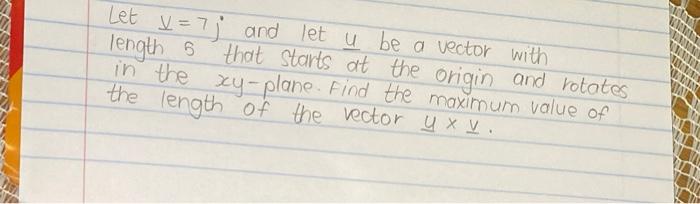 Let v = 7j and let u be a vector with
length 6 that starts at the origin and rotates
in the xy-plane. Find the maximum value of
the length of the vector u × v.